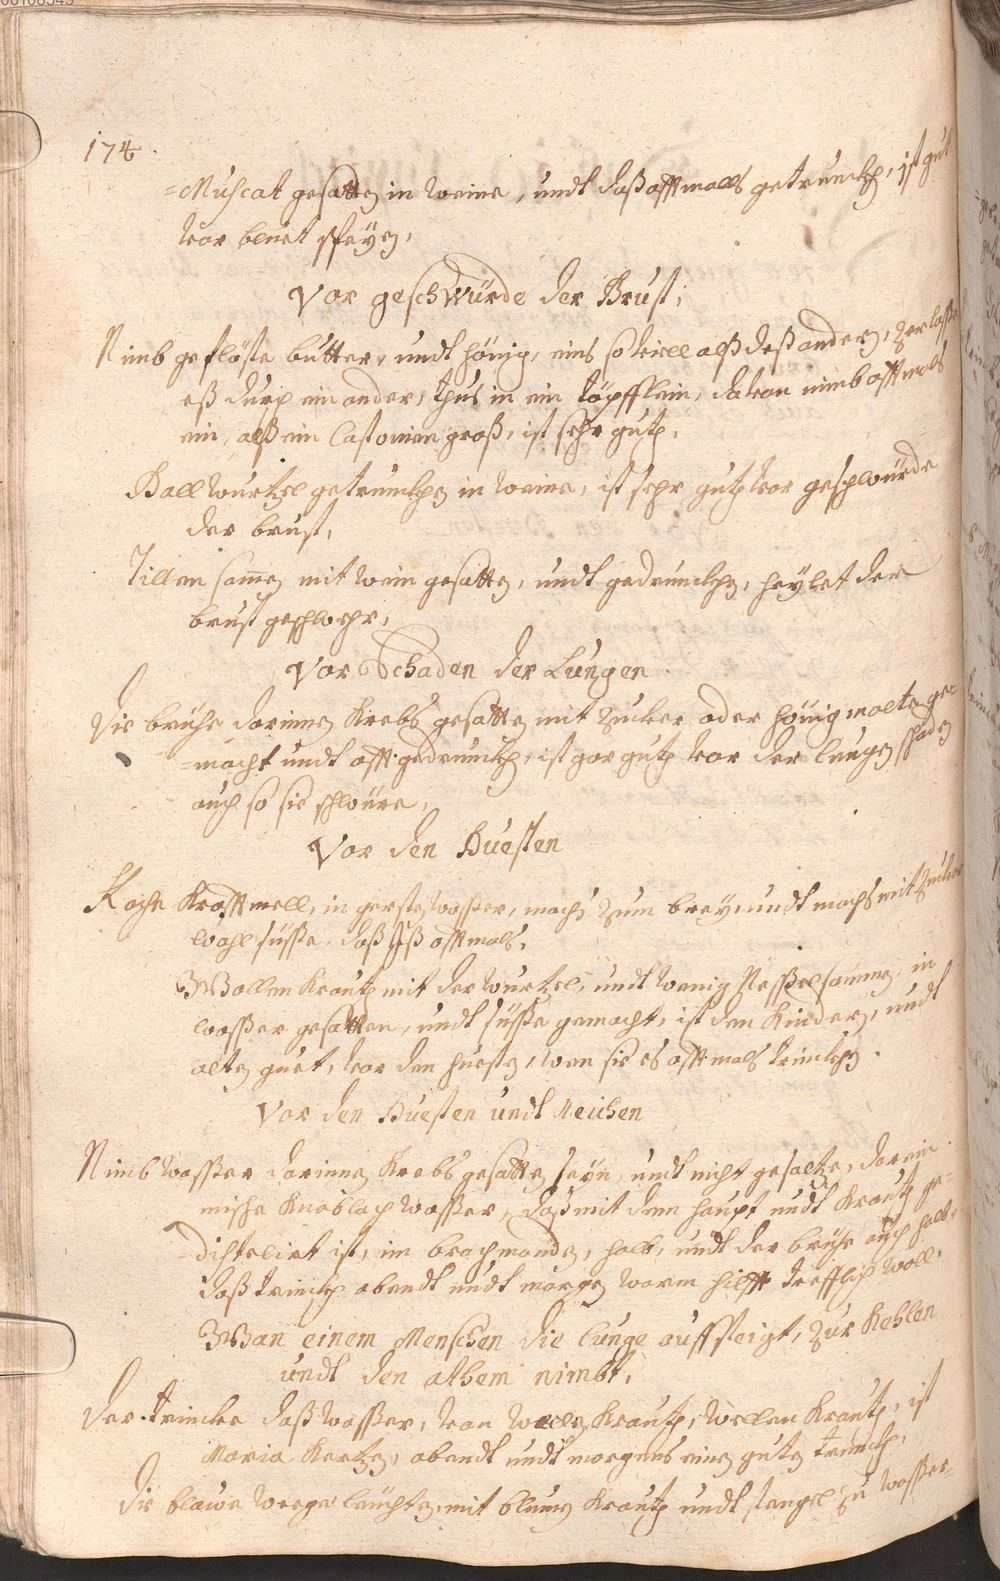 174.
=Muscat gesatten in weine, undt daß offtmalls getrunckh, ist gut
vor bluet speyen,
Vor geschwürde der Brust,
Nimb geflöste butter, undt hönig, eins so viell alß deß andern, zerlasse
eß durch ein ander, thus in ein töpfflein, davon nimb offtmals
ein, alß ein Castonien groß, ist sehr guth,
Ballwurtzel getrunckhen in weine, ist sehr guth vor geschwürde
der brust,
Tillen samen mit wein gesatten, undt gedrunckhen, heylet der
brust geschwehr,
Vor Schaden der Lungen
Die brühe darinnen Krebs gesatten mit Zucker oder hönig
macht undt offt gedrunckh, ist gar guth vor der lungen schaden
auch so sie schwüre,
Vor den Huesten
Koche Krafftmell, in gersten wasser, machs zum brey, undt machs mit Zucker
wohl süsse, daß Iß offtmals,
Wollen Krauth mit der wurtzel, undt wenig Nessel samen, in
wasser gesatten, undt süsse gemacht, ist den Kindern, undt
alten guet, vor den huesten, wan sie es offtmals trinckhen.
Vor den Huesten undt Keichen
Nimb Wasser darinnen Krebs gesatten seyn, undt nicht gesaltzen, darein
mische Knoblach wasser, daß mit dem haupt undt Krauth ge=
=distelirt ist, im brachmonden, halb, undt der brühe auch halb,
daß trinckh abendt undt morgen warm hilfft trefflich woll,
Wan einem Menschen die lunge auffsteigt, zur Kehlen
undt den athem nimbt,
Der trincke daß wasser, von wullen Krauth, wellen Krauth, ist
Maria Kertzen, abendt undt morgens einen guten trunckh,
Die blawe wege leuchten, mit blumen Krauth undt stengel zu wasser=